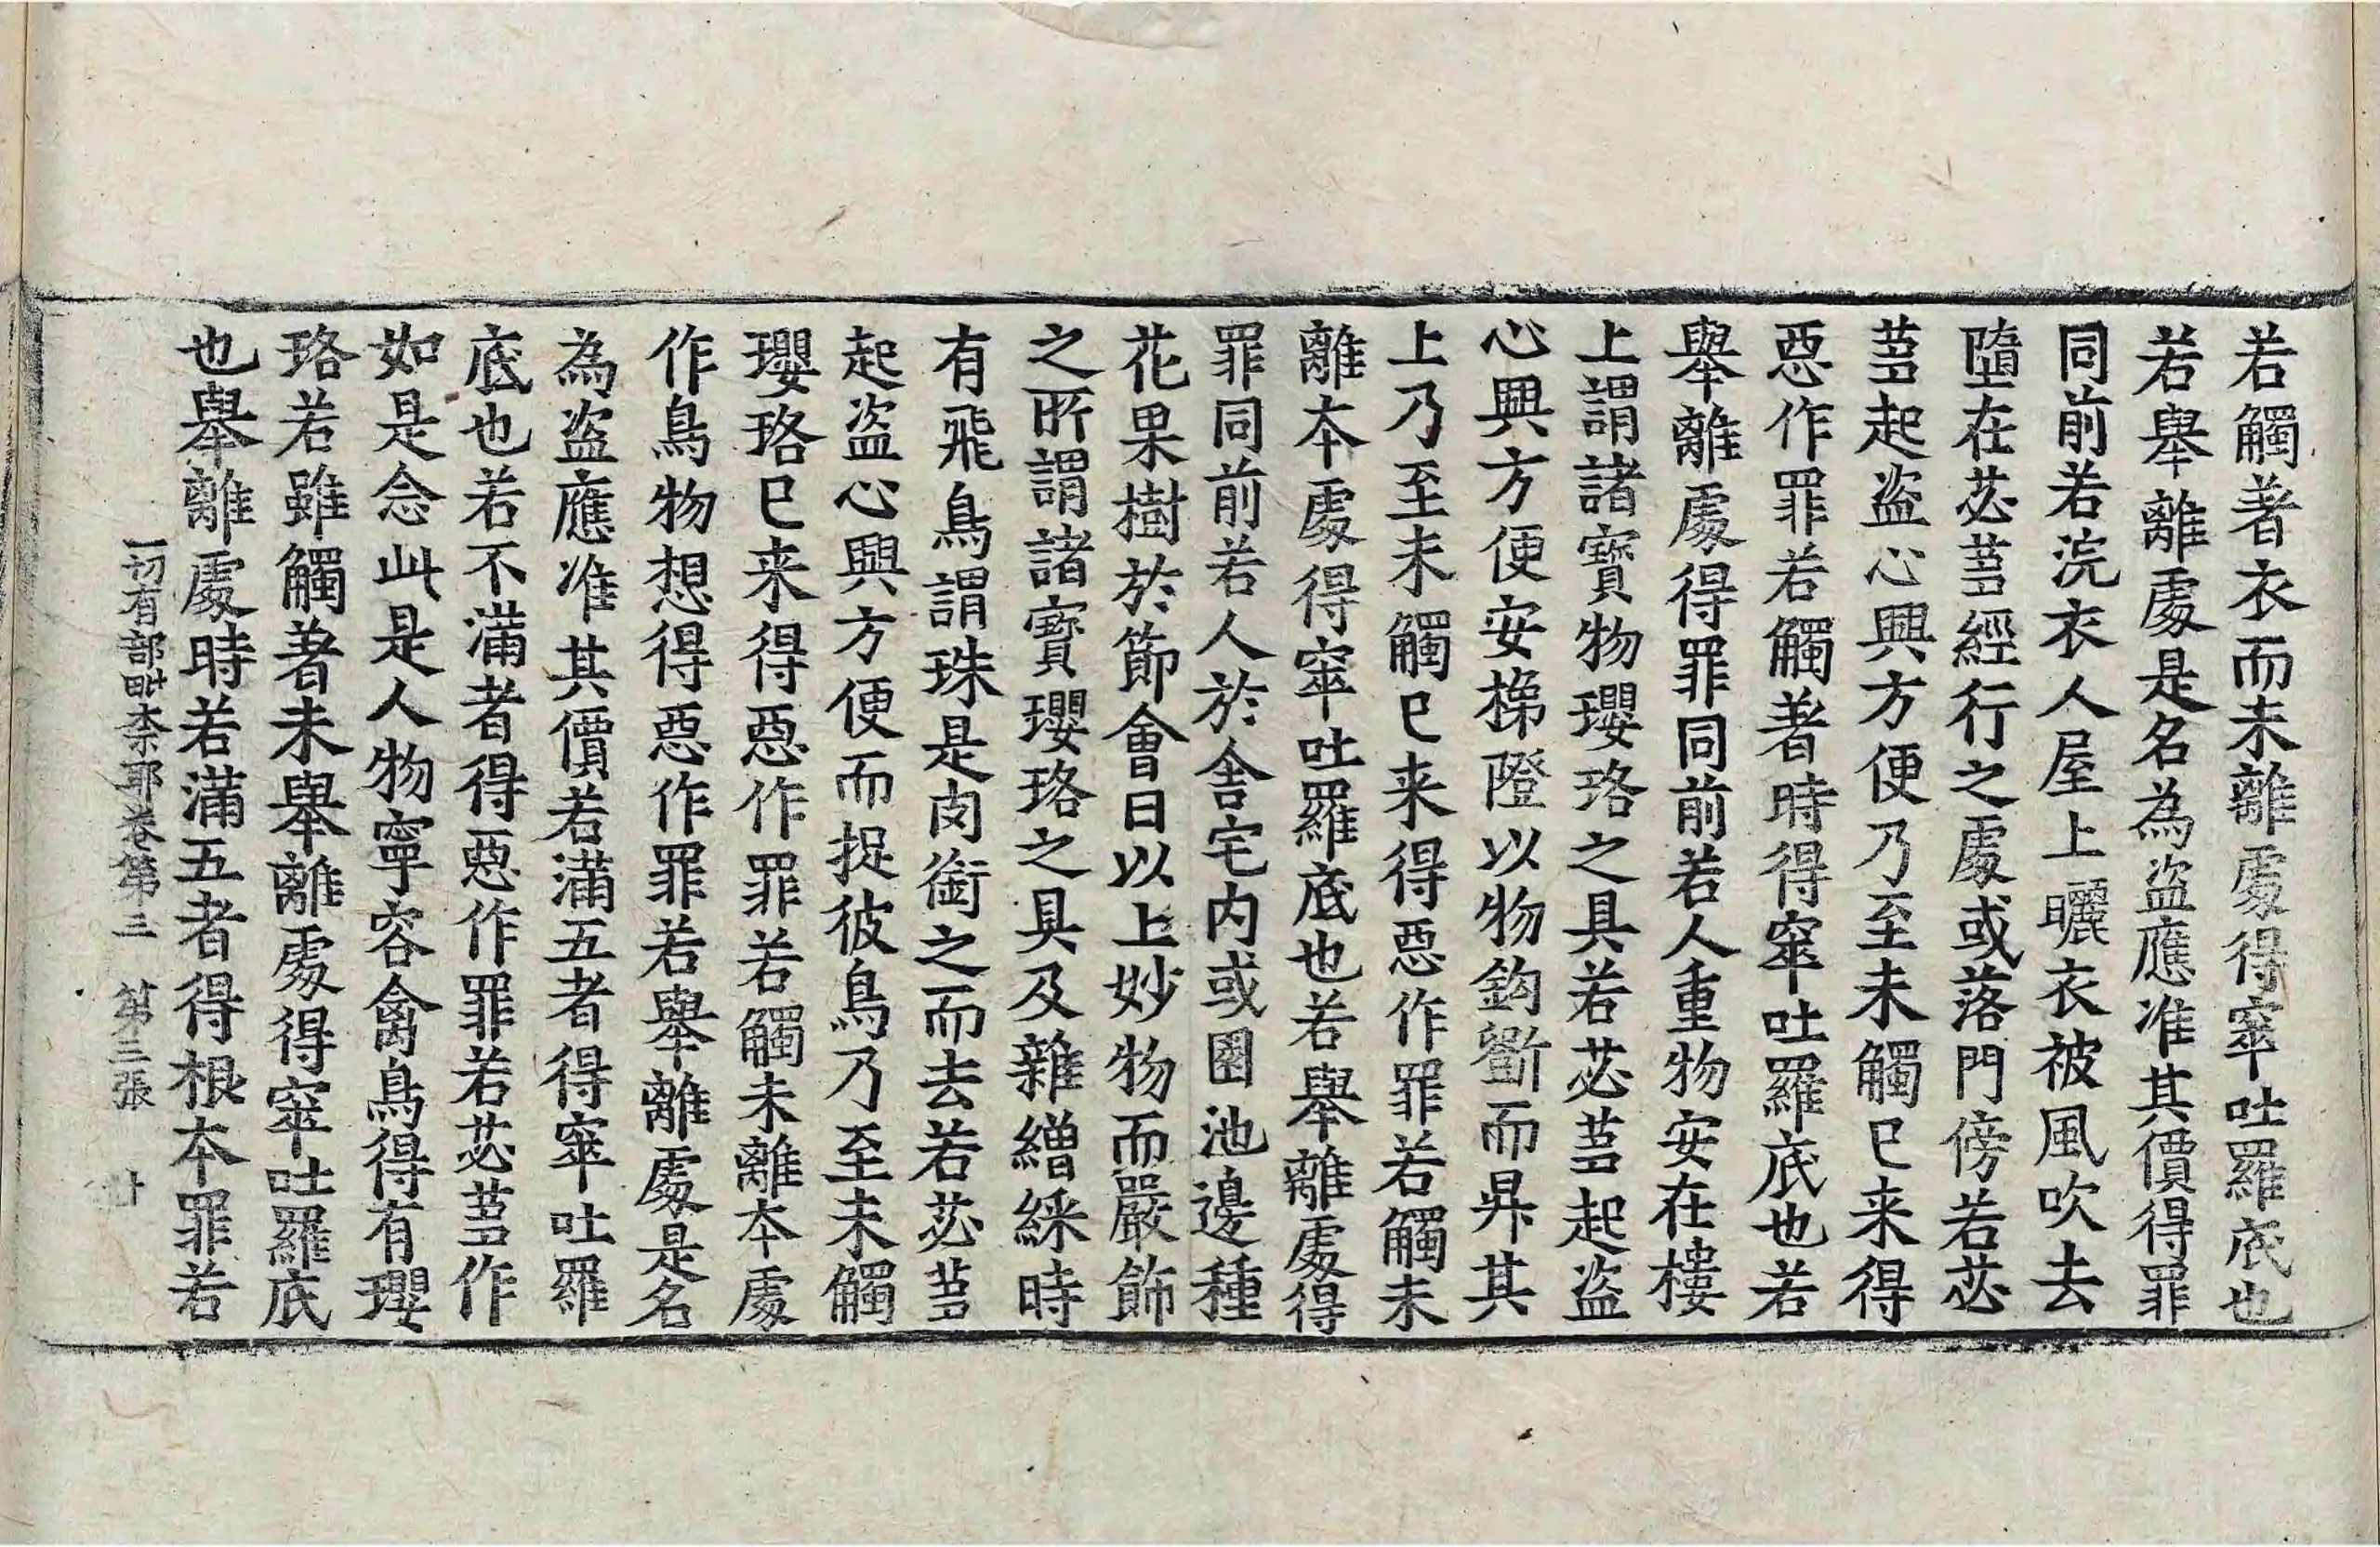 若觸著衣而未離處得窣吐羅底也
若舉離處是名為盜應准其價得罪
同前若浣衣人屋上曬衣被風吹去
墮在苾蒭經行之處或落門傍若苾
蒭起盜心興方便乃至未觸已来得
惡作罪若觸著時得窣吐羅底也若
舉離處得罪同前若人重物安在樓
上謂諸寶物瓔珞之具若苾蒭起盜
心興方便安梯隥以物鈎斵而昇其
上乃至未觸已来得惡作罪若觸未
離本處得窣吐羅底也若舉離處得
罪同前若人於舍宅内或園池邊種
花果樹於節會日以上妙物而嚴飾
之所謂諸寶瓔珞之具及雜繒綵時
有飛鳥謂珠是肉銜之而去若苾蒭
起盜心興方便而捉彼鳥乃至未觸
瓔珞已来得惡作罪若觸未離本處
作鳥物想得惡作罪若舉離處是名
為盜應准其價若滿五者得窣吐羅
底也若不滿者得惡作罪若苾蒭作
如是念此是人物寧容禽鳥得有瓔
珞若雖觸著未舉離處得窣吐羅底
也舉離處時若滿五者得根本罪若
一切有部毗柰耶卷第三 第三張 甘